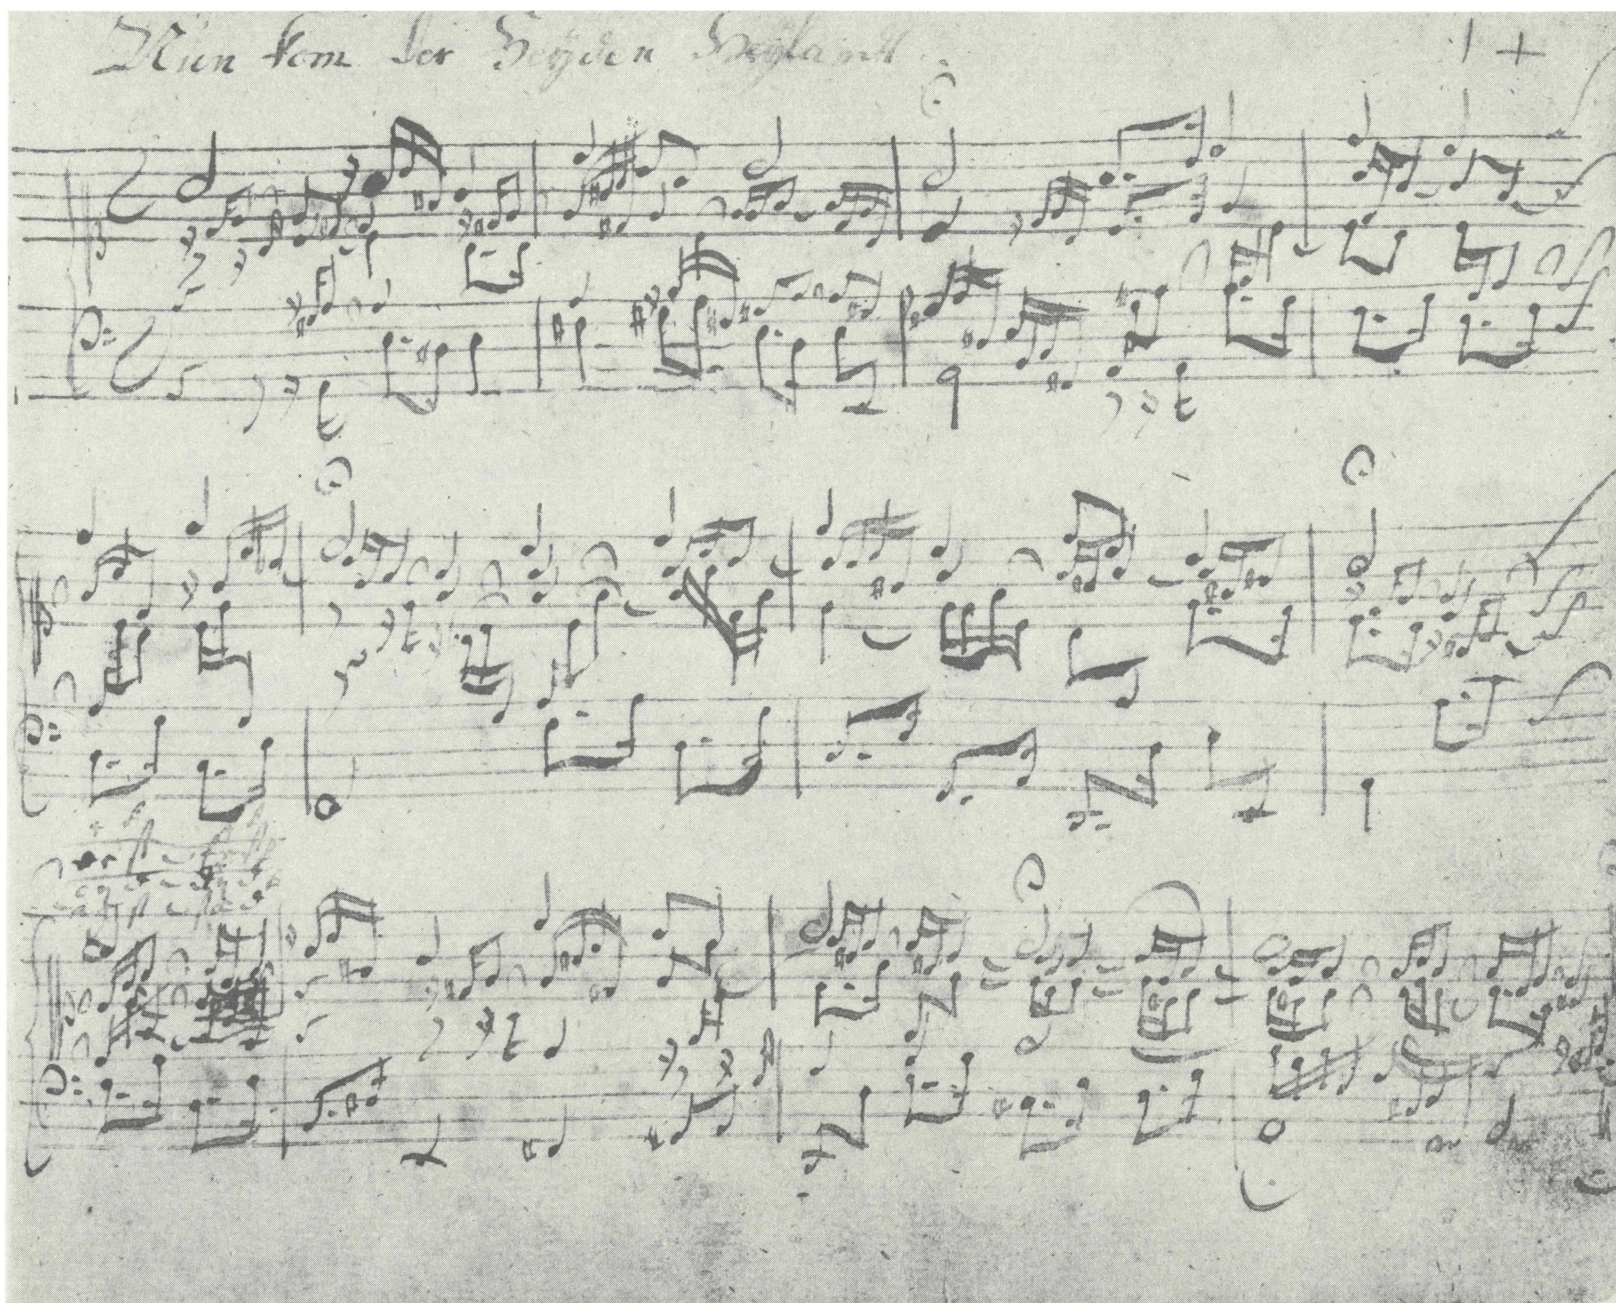 Nun kom der Heyden Heyland. 1